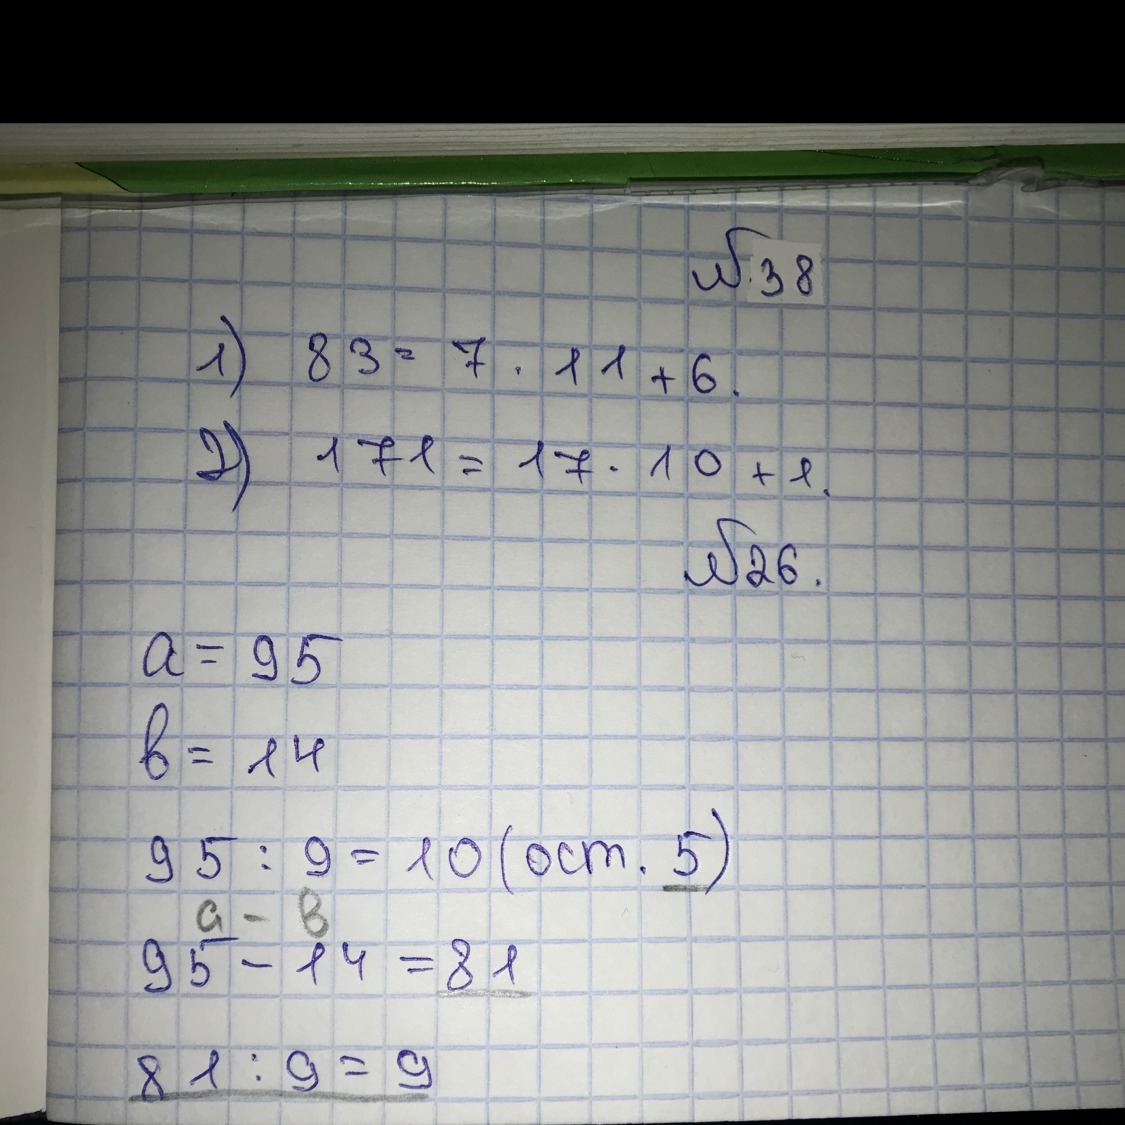 №.38
1) 83 = 7 · 11 + 6.
2) 171 = 17 · 10 + 1.
№26.
a = 95
в = 14
95 : 9 = 10 (ост. 5)
a - в
95 - 14 = 81
81 : 9 = 9